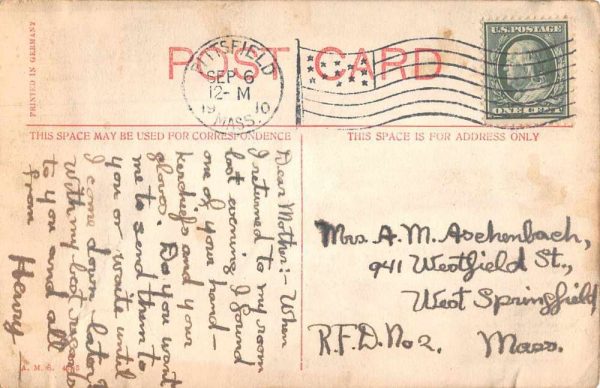 PRINTED IN GERMANY
POST CARD
PITTSFIELD
SEP 6
12-M
1910
MASS.
U.S. POSTAGE
ONE CENT
THIS SPACE MAY BE USED FOR CORRESPONDENCE
THIS SPACE IS FOR ADDRESS ONLY
Dear Mother:- When
I returned to my room
last evening I found
one of your hand-
kerchiefs and your
gloves. Do you want
me to send them to
you or wait until
I come down later?
With my best regards
to you and all
from Henry
Mrs. A. M. Aschenbach,
941 Westfield St.,
West Springfield
R.F.D. No 2. Mass.
A. M. S.